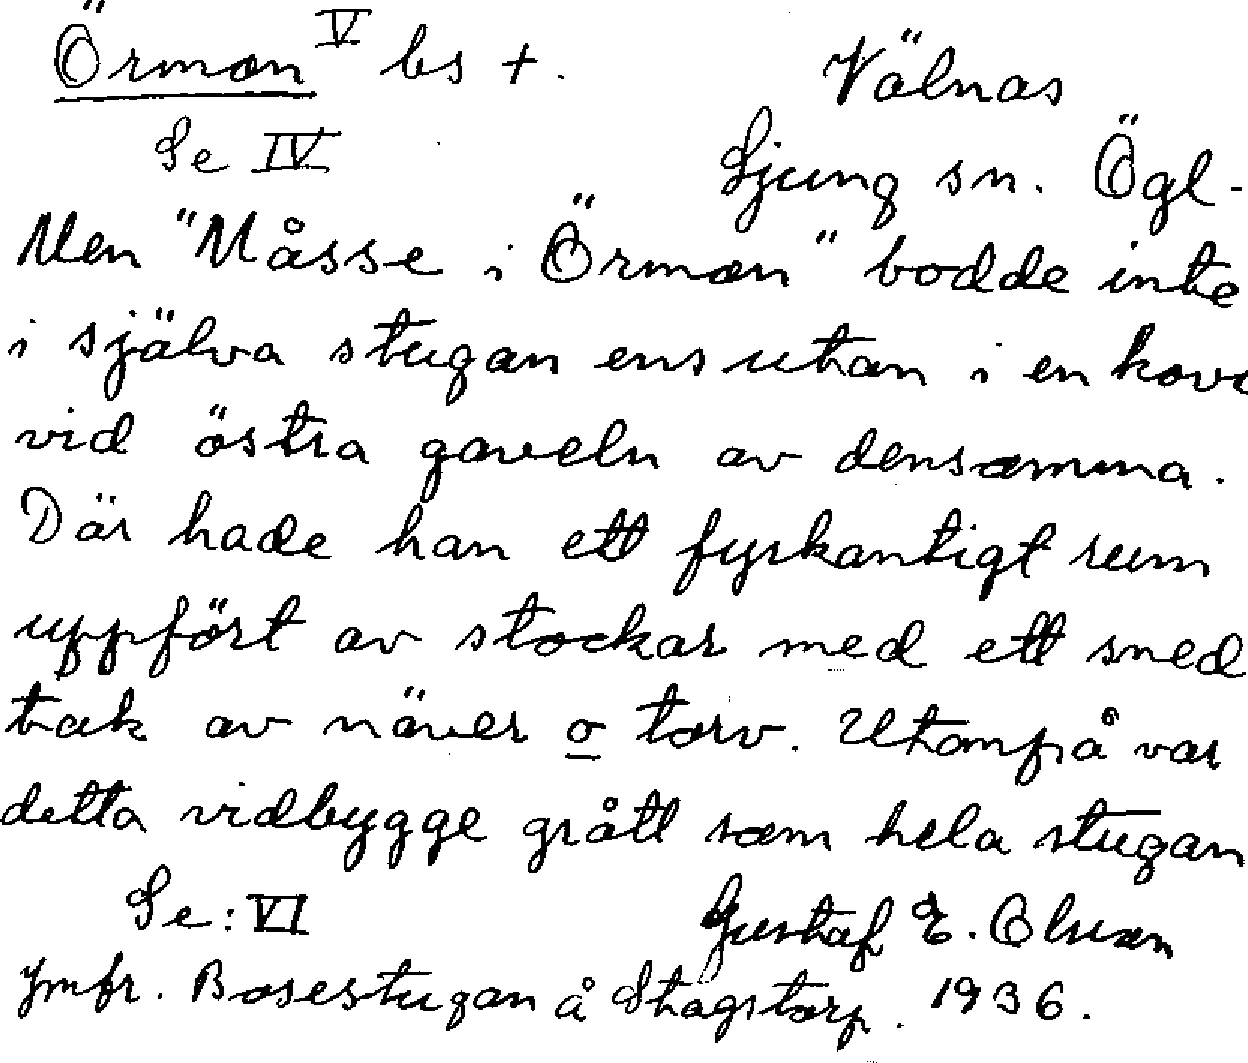 Örman V bs +. Välnäs
Se IV Ljung sn. Ögl.
Men "Måsse i Örman" bodde inte
i själva stugan ens utan i en kove
vid östra gaveln av densamma.
Där hade han ett fyrkantigt rum
uppfört av stockar med ett sned
tak av näver o torv. Utanpå var
detta vidbygge grått som hela stugan
Se: VI Gustaf E. Olsson
Jmfr. Bosestugan å Stagstorp. 1936.